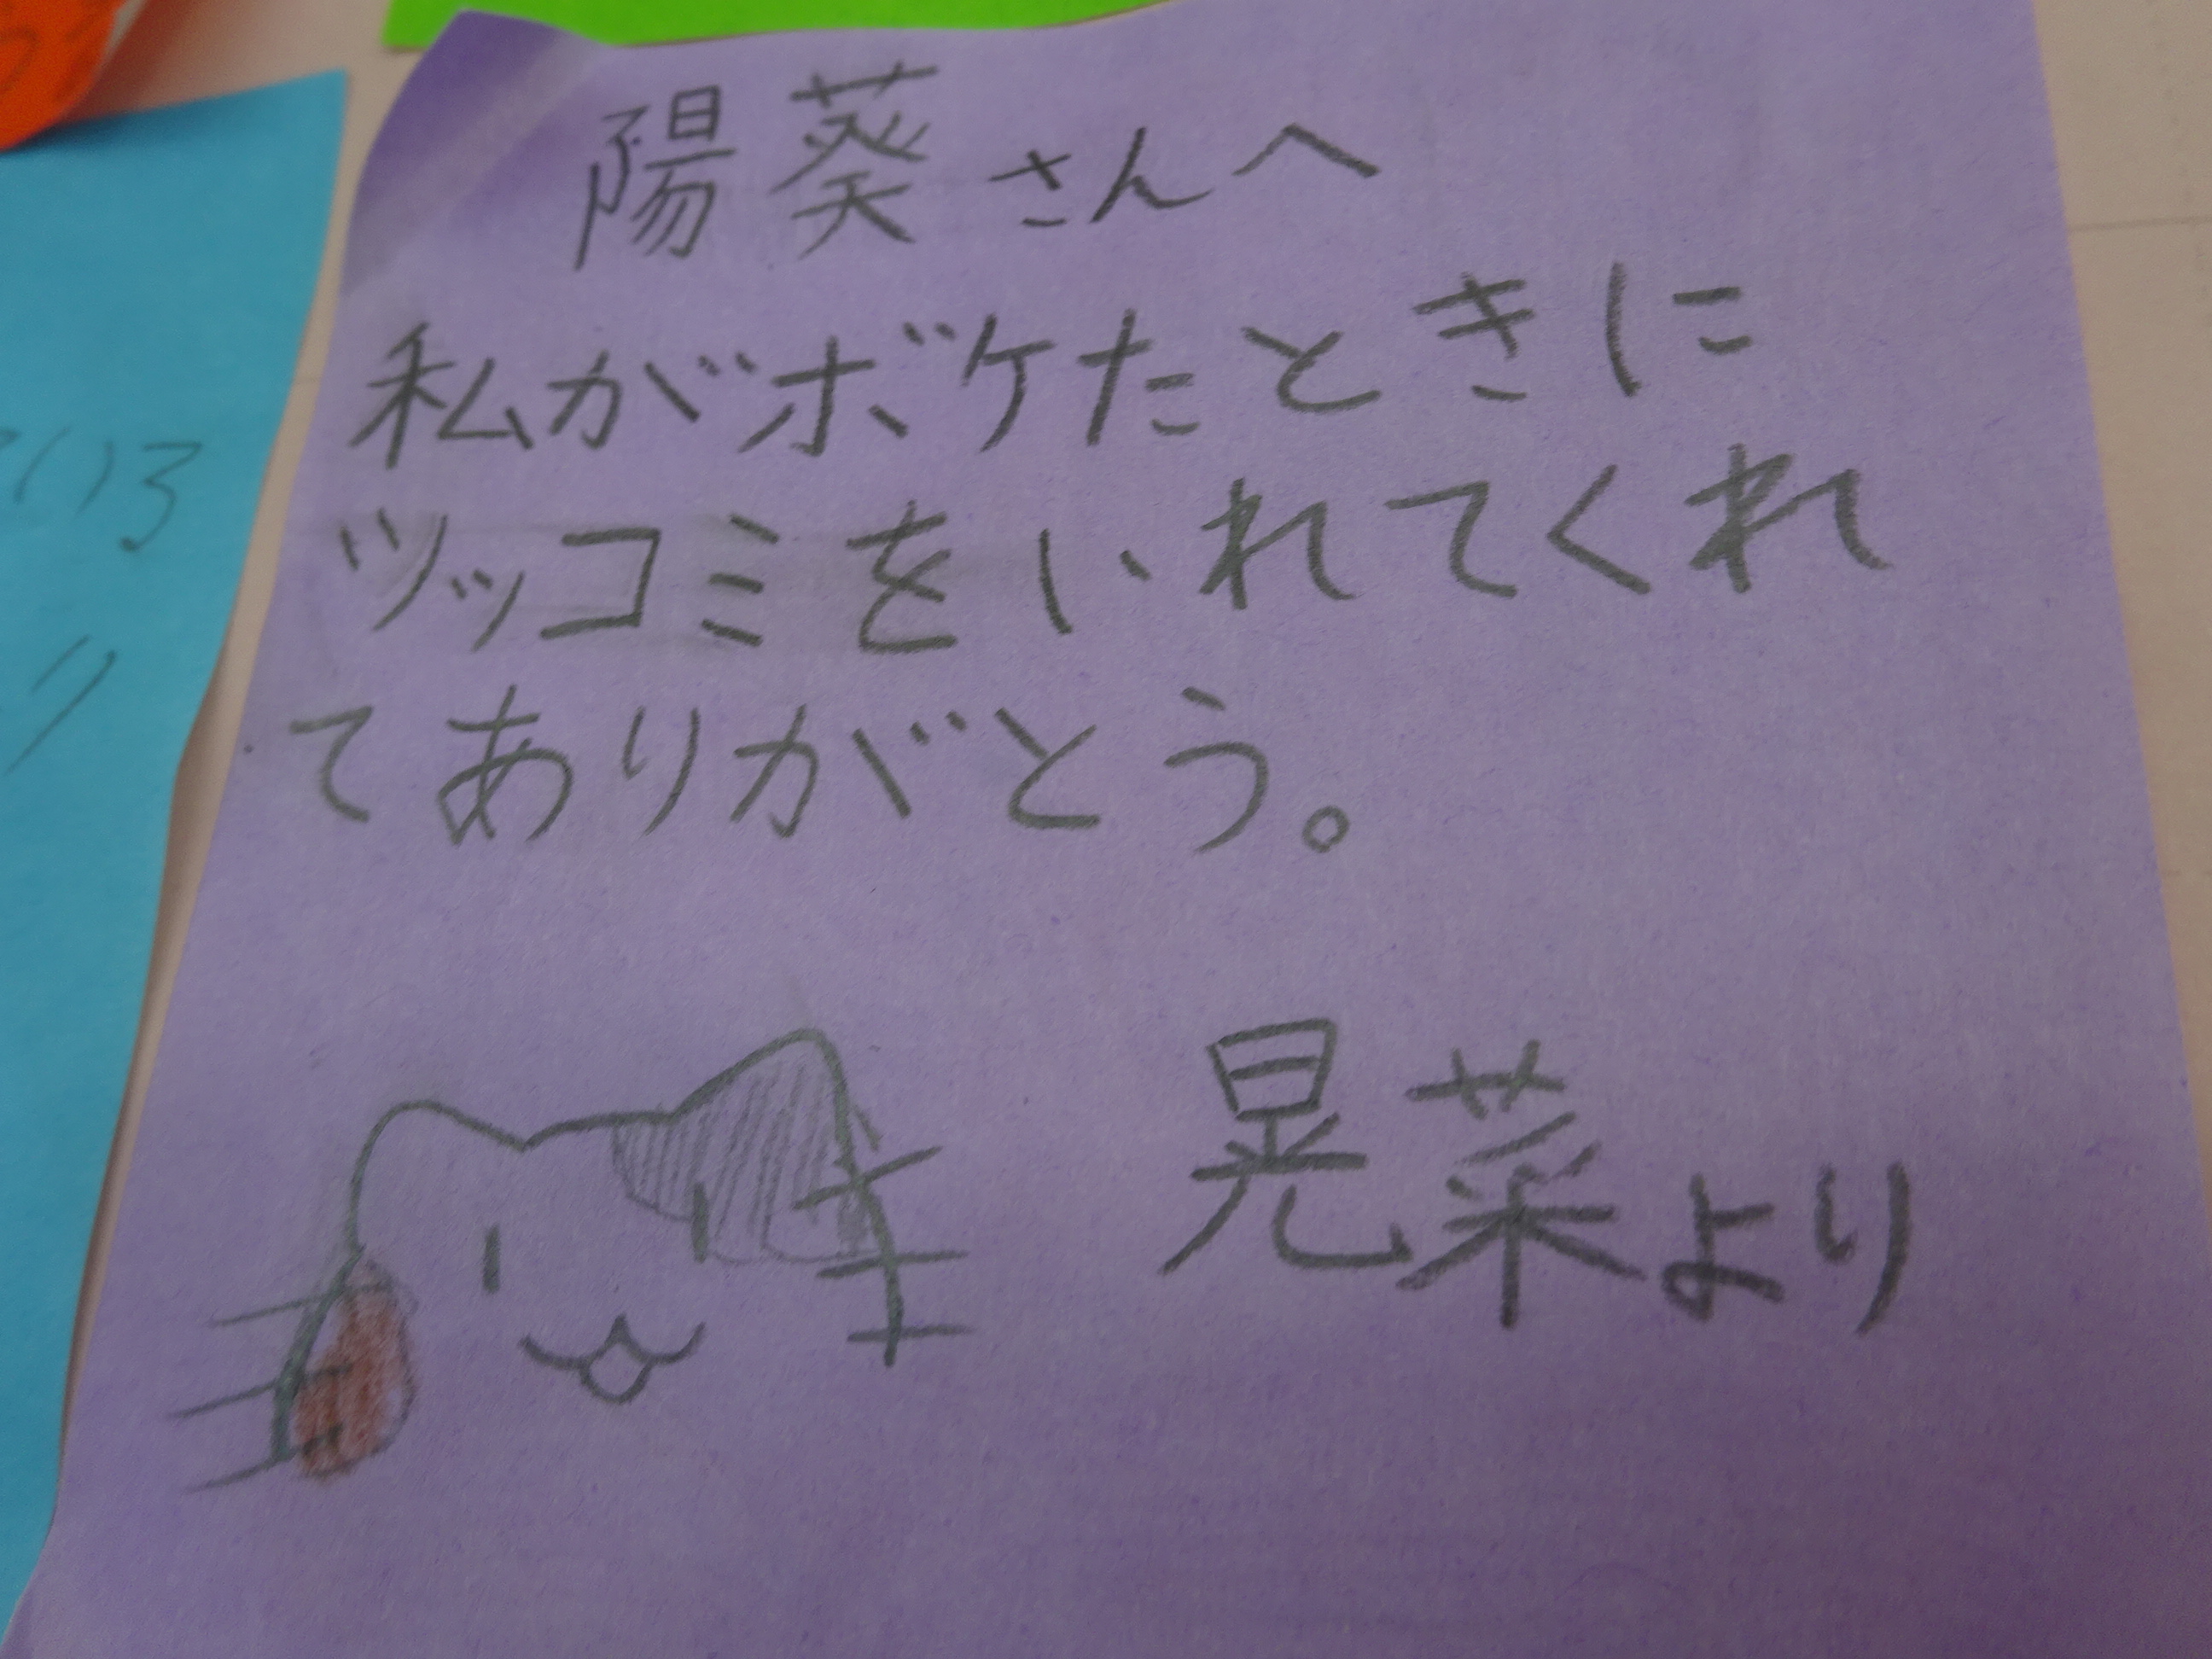 陽葵さんへ
私がボケたときに
ツッコミをいれてくれ
てありがとう。
晃菜より